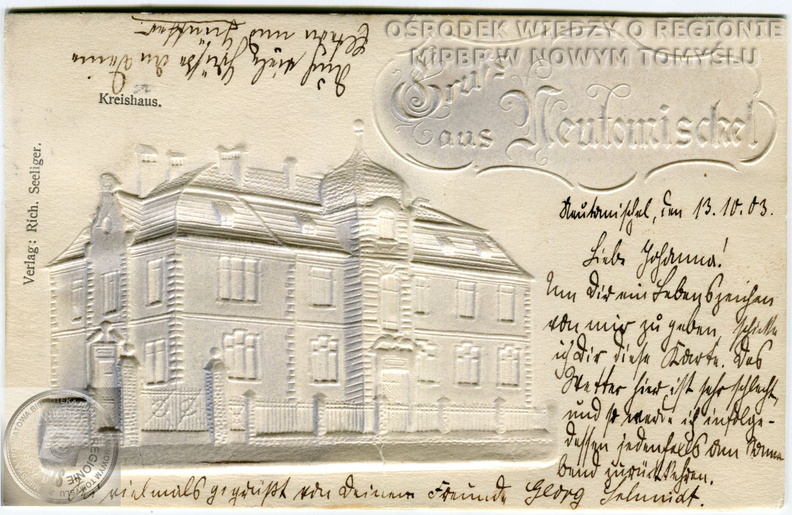 OŚRODEK WIEDZY O REGIONIE
MiPBP W NOWYM TOMYŚLU
Gruss
aus Neutomischel
Kreishaus.
Verlag: Rich. Seeliger.
Neutomischel, den 13.10.03.
Liebe Johanna!
Um Dir ein Lebenszeichen
von mir zu geben, schicke
ich Dir diese Karte. Das
Wetter hier ist sehr schlecht,
und so werde ich infolge-
dessen jedenfalls am Sonna-
bend zurückkehren.
vielmals gegrüßt von Deinem Freunde Georg Schmidt.
Auch viele Grüße an Deine
Eltern und